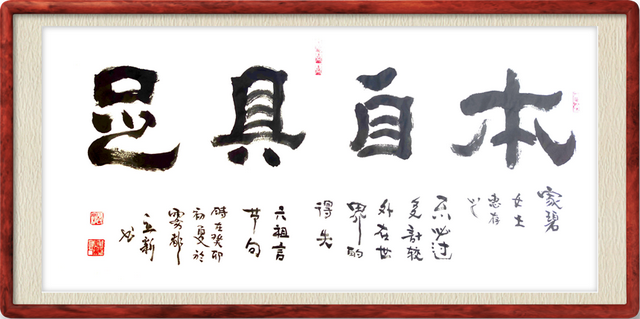 本自具足
家碧
女士
惠存
不必过
多计较
外在世
界的
得失
六祖言
节句
时在癸卯
初夏於
雾都
立新
书